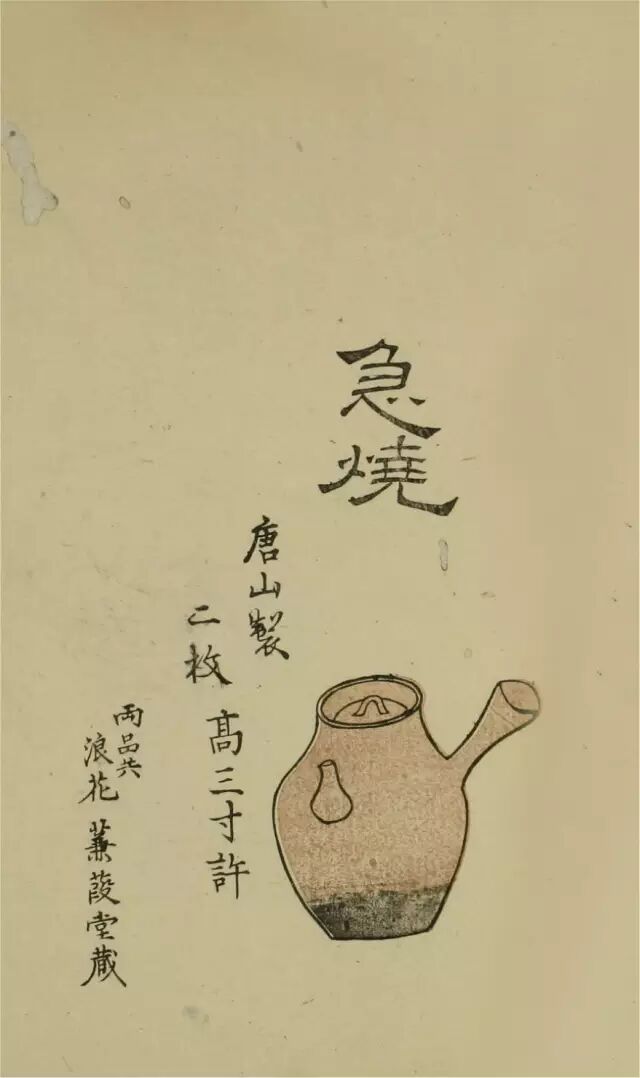 急燒
唐山製
二枚
高三寸許
兩品共
浪花 蒹葭堂蔵